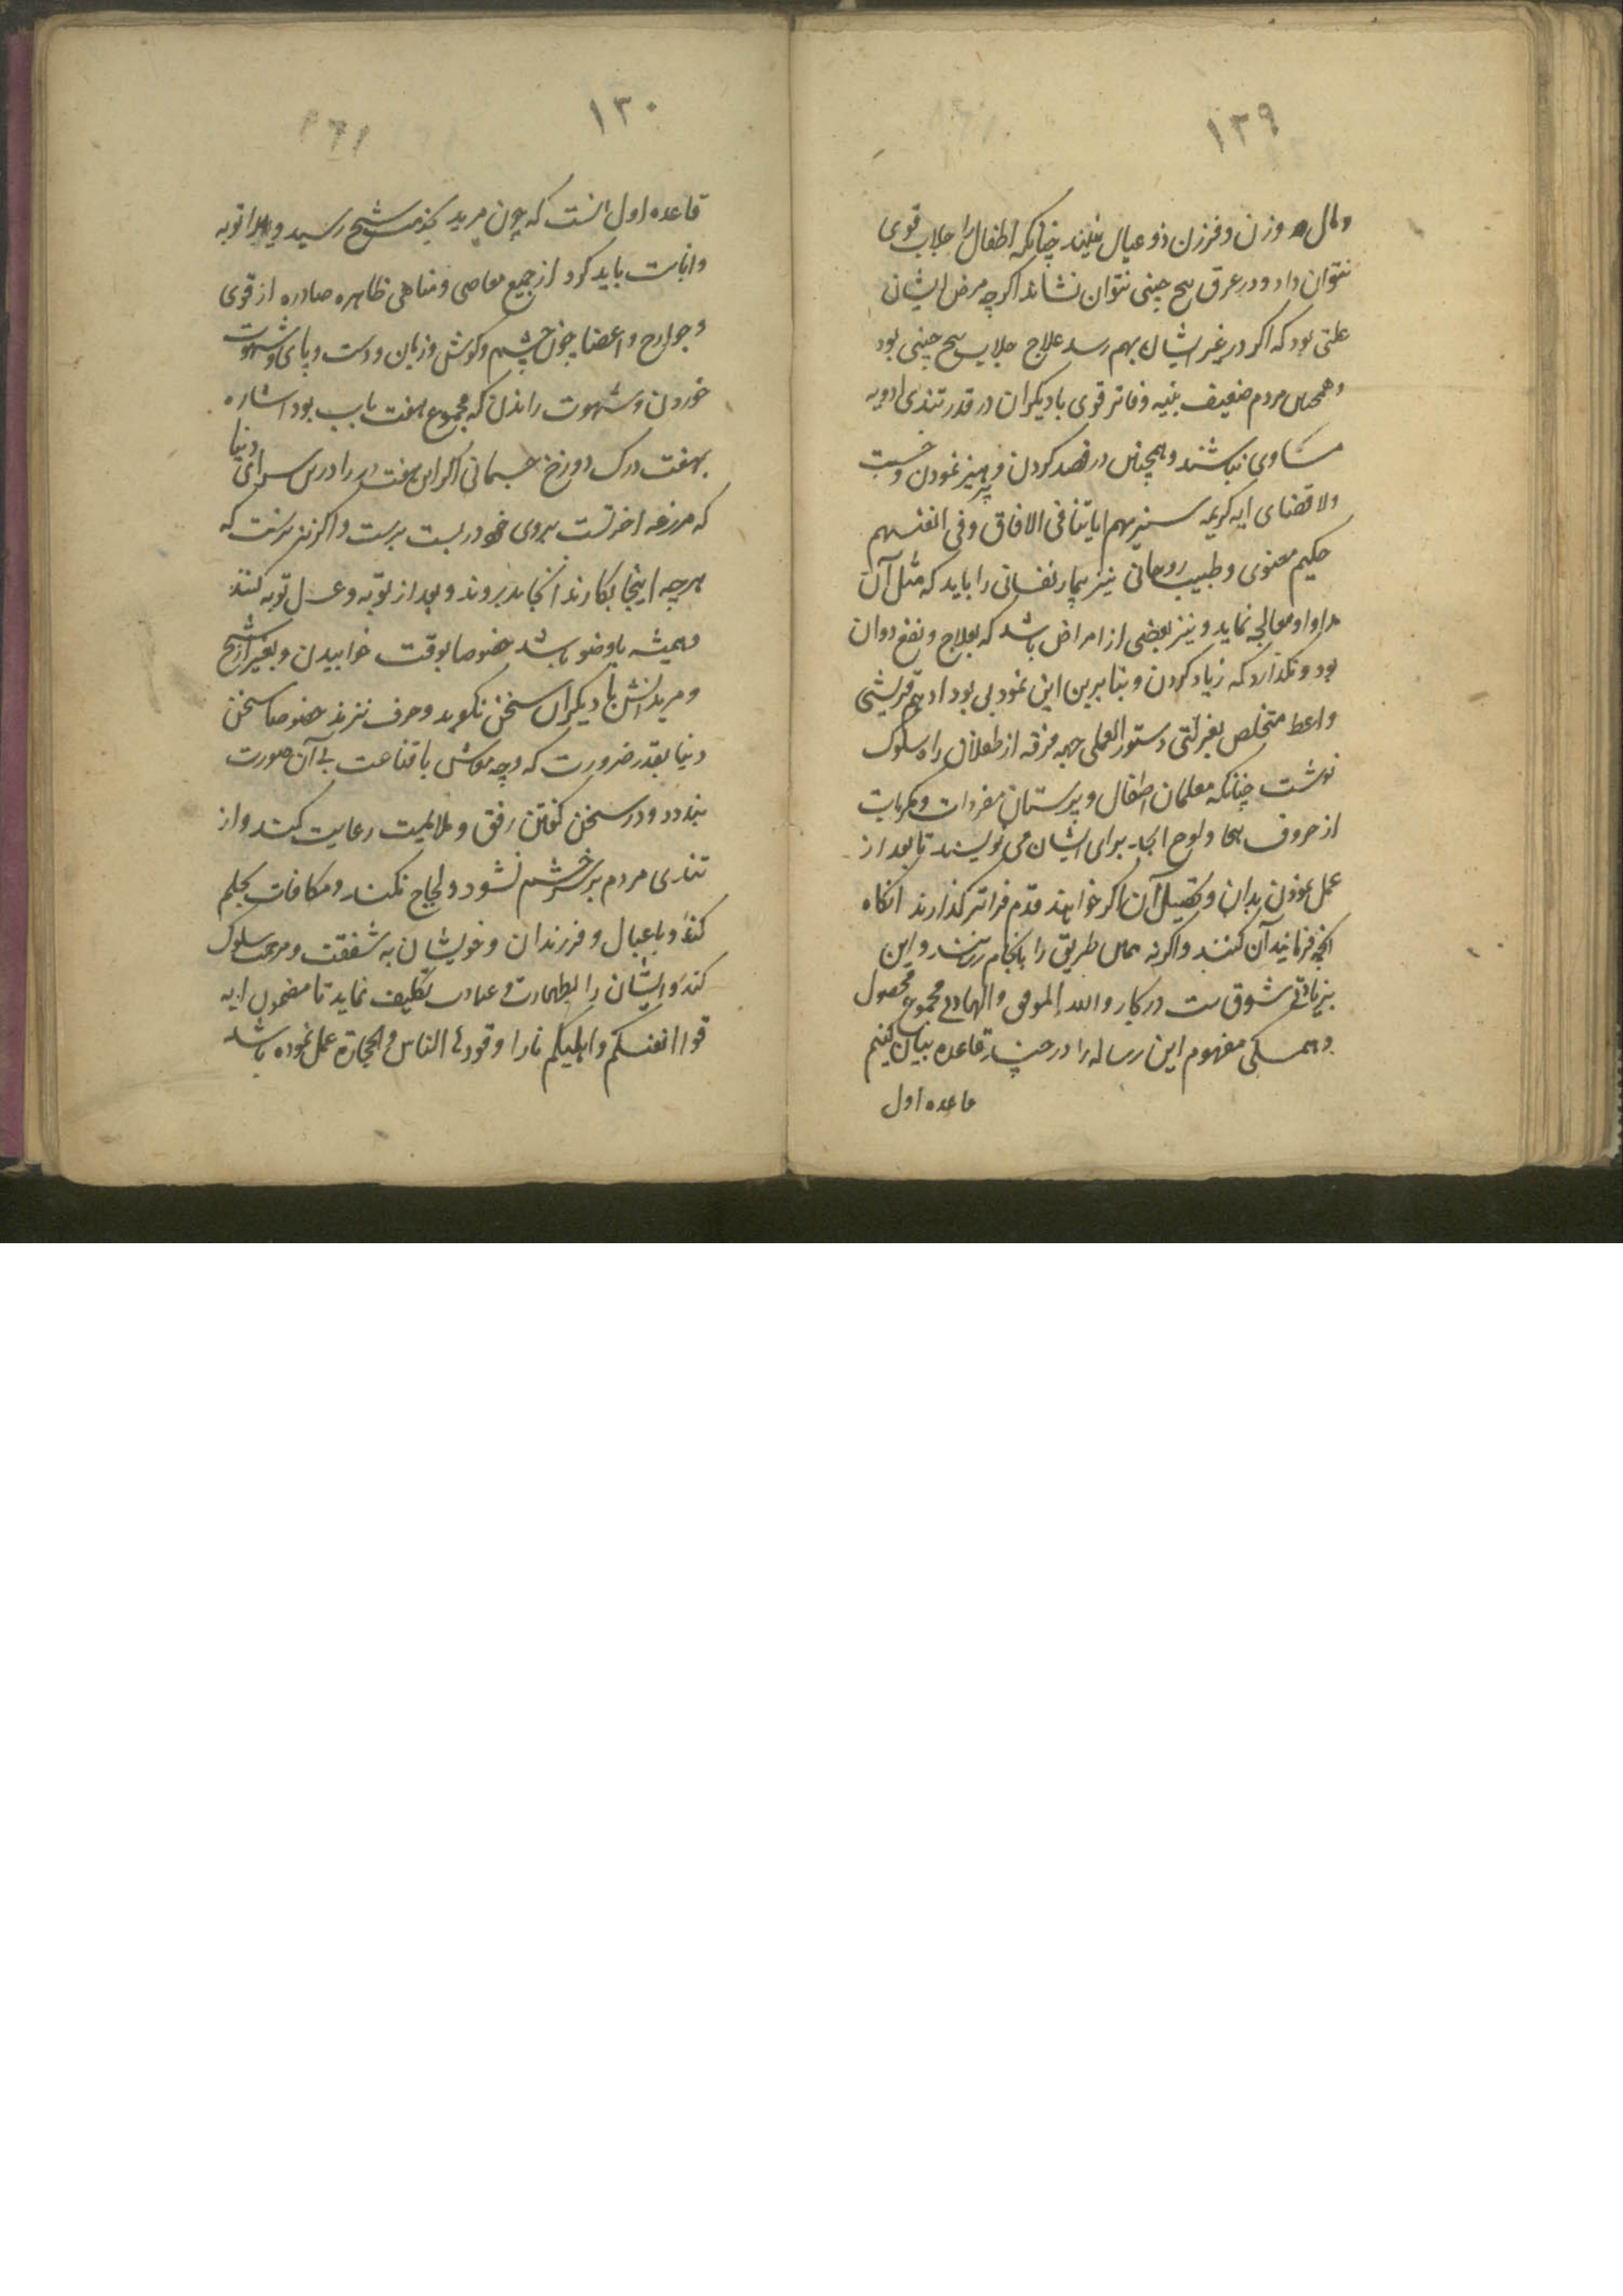 ۱۲۹
و مال و زن و فرزن ذو عیال نیند چنانکه اطفال را جلاب قوی
نتوان داد و در عرق بیخ چینی نتوان نشاند اکرچه مرض ایشان
علتی بود که اکر در غیر ایشان بهم رسد علاج جلاب بیخ چینی بود
و همچنان مردم ضعیف بنیه و فاتر قوی با دیکران در قدر تندی ادویه
مساوی نباشند و همچنان در فصد کردن و پرهیز نمودن و
ولاقضای ایه کریمه سنریهم ایاتنا فی الافاق و فی انفسهم
حکیم معنوی و طبیب روحانی نیز بیمار نفسانی را باید که مثل آن
مداوا و معالجه نماید و نیز بعضی از امراض باشد که بعلاج و نفع دوان
بود و نکذارد که زیاد کردن و بنابرین این نمود بی بود ادهم قریشی
واعظ متخلص بعزلتی دستور العملی جهه فرقه از طفلان راه سلوک
نوشت چنانکه معلمان اطفال و پرستان مفردات و مرکبات
از حروف هجا و لوح ابجد برای ایشان می نویسند تا بعد از
عمل نمودن بدان و تحصیل آن اکر خواهند قدم فراتر کذارند انکاه
انچه فرمانید آن کنند و اکرنه همان طریق را بانجام رسانند و این
بزیادتی شوق ست در کار و الله الموفق و الهادی مجموع محصول
و همسکی مفهوم این رساله را در چند قاعده بیان کنیم
قاعده اول
۱۳۰
قاعده اول انست که چون مرید بخدمت شیخ رسید ویرا توبه
وانابت باید کرد از جمیع معاصی و مناهی ظاهره صادره از قوی
و جوارح و اعضا چون چشم و کوش و زبان و دست و پای و شهوت
خوردن و شهوت راندن که مجموع هفت باب بود اشاره
بهفت درک دوزخ جسمانی اکر این هفت در را درین سرای دنیا
که مزرعه اخرتست بروی خود در بست برست و اکرنه نرست که
هرچه اینجا بکارند آنجا بدروند و بعد از توبه و غسل توبه کنند
و همیشه باوضو باشد خصوصا بوقت خوابیدن و بغیر از شیخ
و مریدانش با دیکران سخن نکوید و حرف نزند خصوصا سخن
دنیا بقدر ضرورت که وجه معاش با قناعت بی آن صورت
نبندد و در سخن کفتن رفق و ملایمت رعایت کند و از
تندی مردم برسر خشم نشود و لجاج نکند و مکافات بحلم
کند و با عیال و فرزندان و خویشان به شفقت و مرحمت سلوک
کند و ایشان را بطهارت و عبادت تکلیف نماید تا مضمون ایه
قوا انفسکم و اهلیکم نارا وقودها الناس و الحجارة عمل نموده باشد